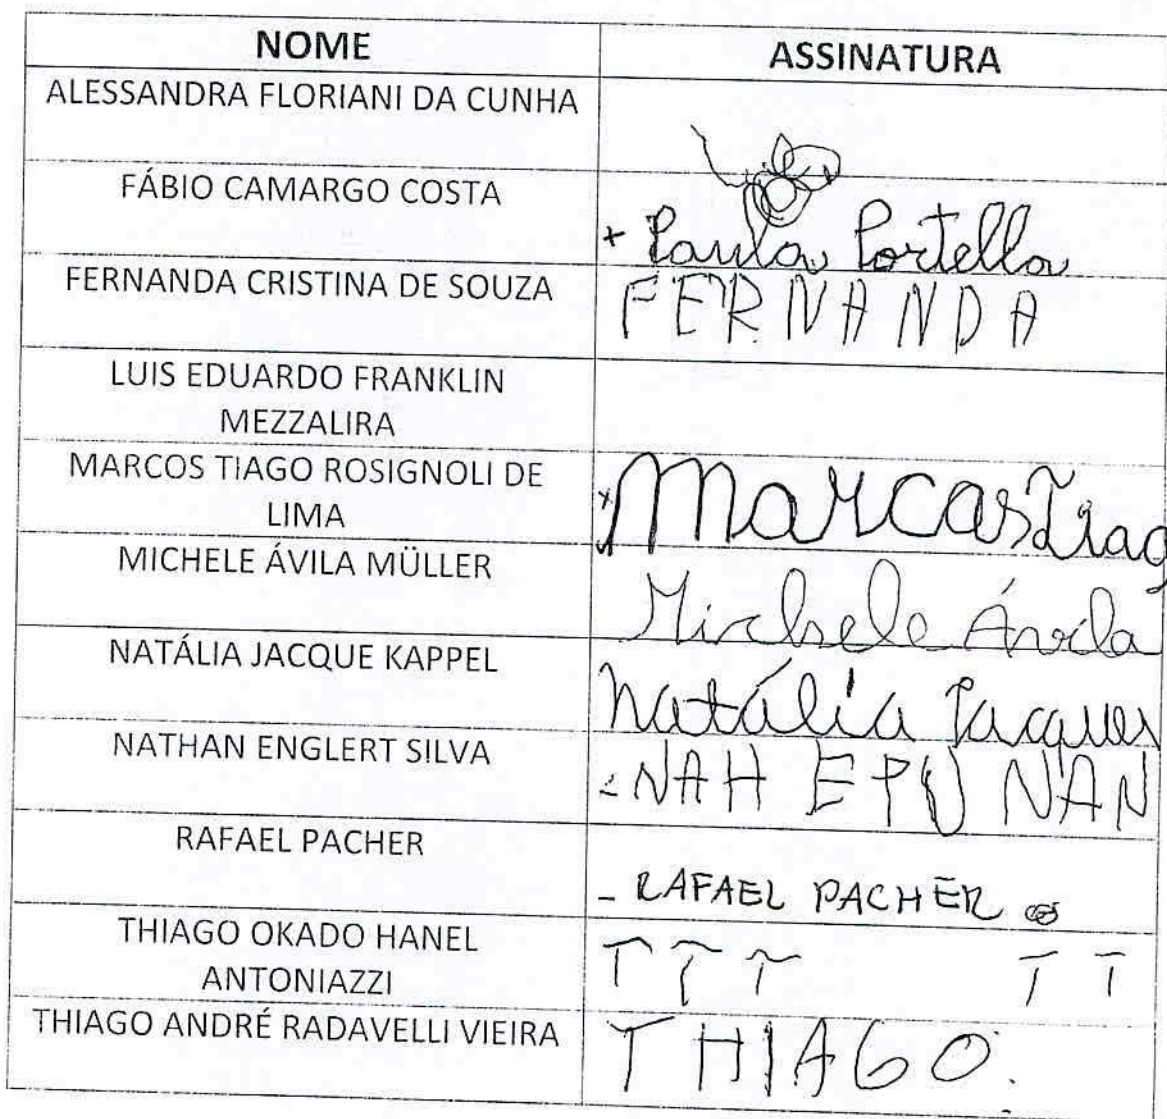 NOME ASSINATURA
ALESSANDRA FLORIANI DA CUNHA
FÁBIO CAMARGO COSTA
+ Paula Portella
FERNANDA CRISTINA DE SOUZA
FERNANDA
LUIS EDUARDO FRANKLIN
MEZZALIRA
MARCOS TIAGO ROSIGNOLI DE
LIMA
x Marcos Tiag
MICHELE ÁVILA MÜLLER
Michele Ávila
NATÁLIA JACQUE KAPPEL
Natália Jacques
NATHAN ENGLERT SILVA
NAH EPU NAN
RAFAEL PACHER
- RAFAEL PACHER
THIAGO OKADO HANEL
ANTONIAZZI
T T T T T
THIAGO ANDRÉ RADAVELLI VIEIRA
THIAGO.